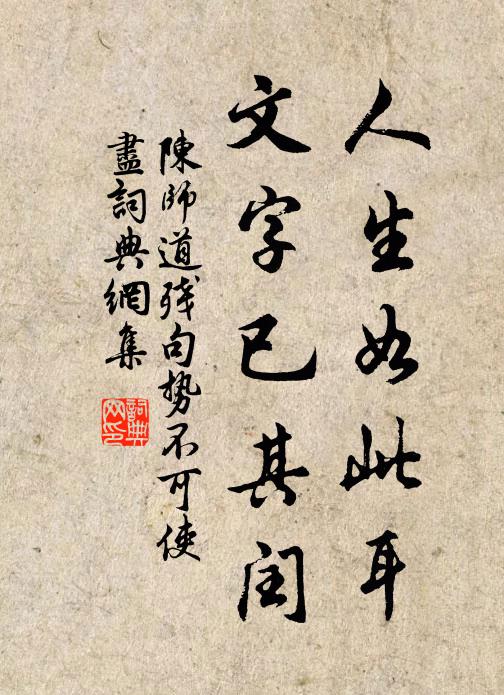 人生如此耳
文字已其闰
陳師道残句勢不可使
盡詞典網集
詞典
网印